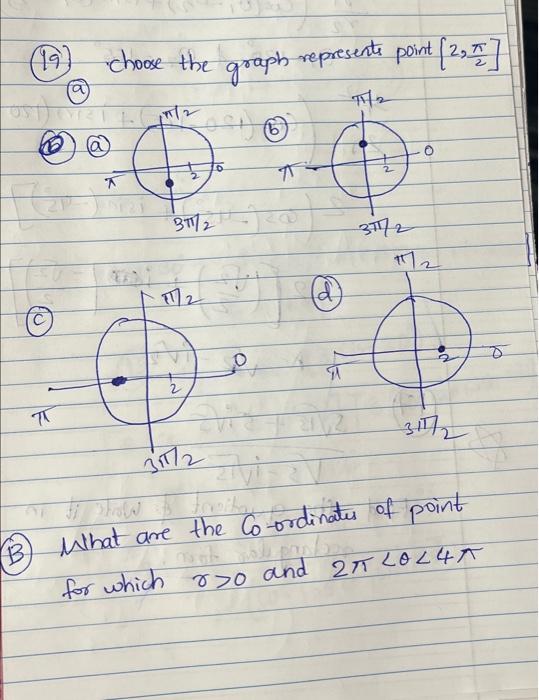 19) choose the graph represents point [2, π/2]
(a)
(a) π/2 π 2 0 3π/2
(b) π/2 π 2 0 3π/2
(c) π/2 π 2 0 3π/2
(d) π/2 π 2 0 3π/2
(B) What are the Co-ordinates of point
for which r>0 and 2π<θ<4π